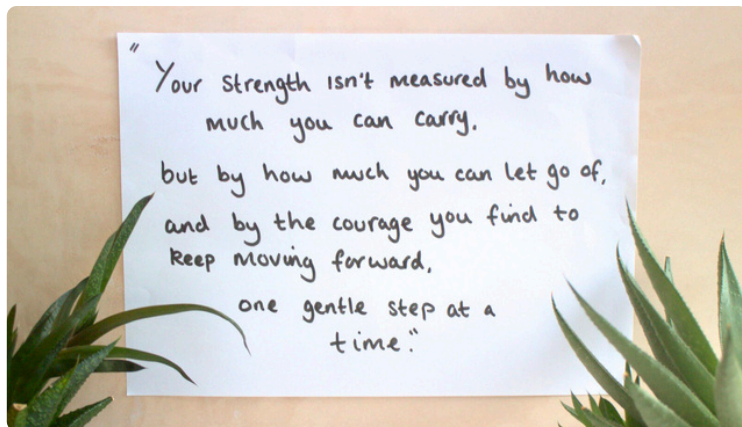 "Your strength isn't measured by how
much you can carry.
but by how much you can let go of,
and by the courage you find to
keep moving forward,
one gentle step at a
time."